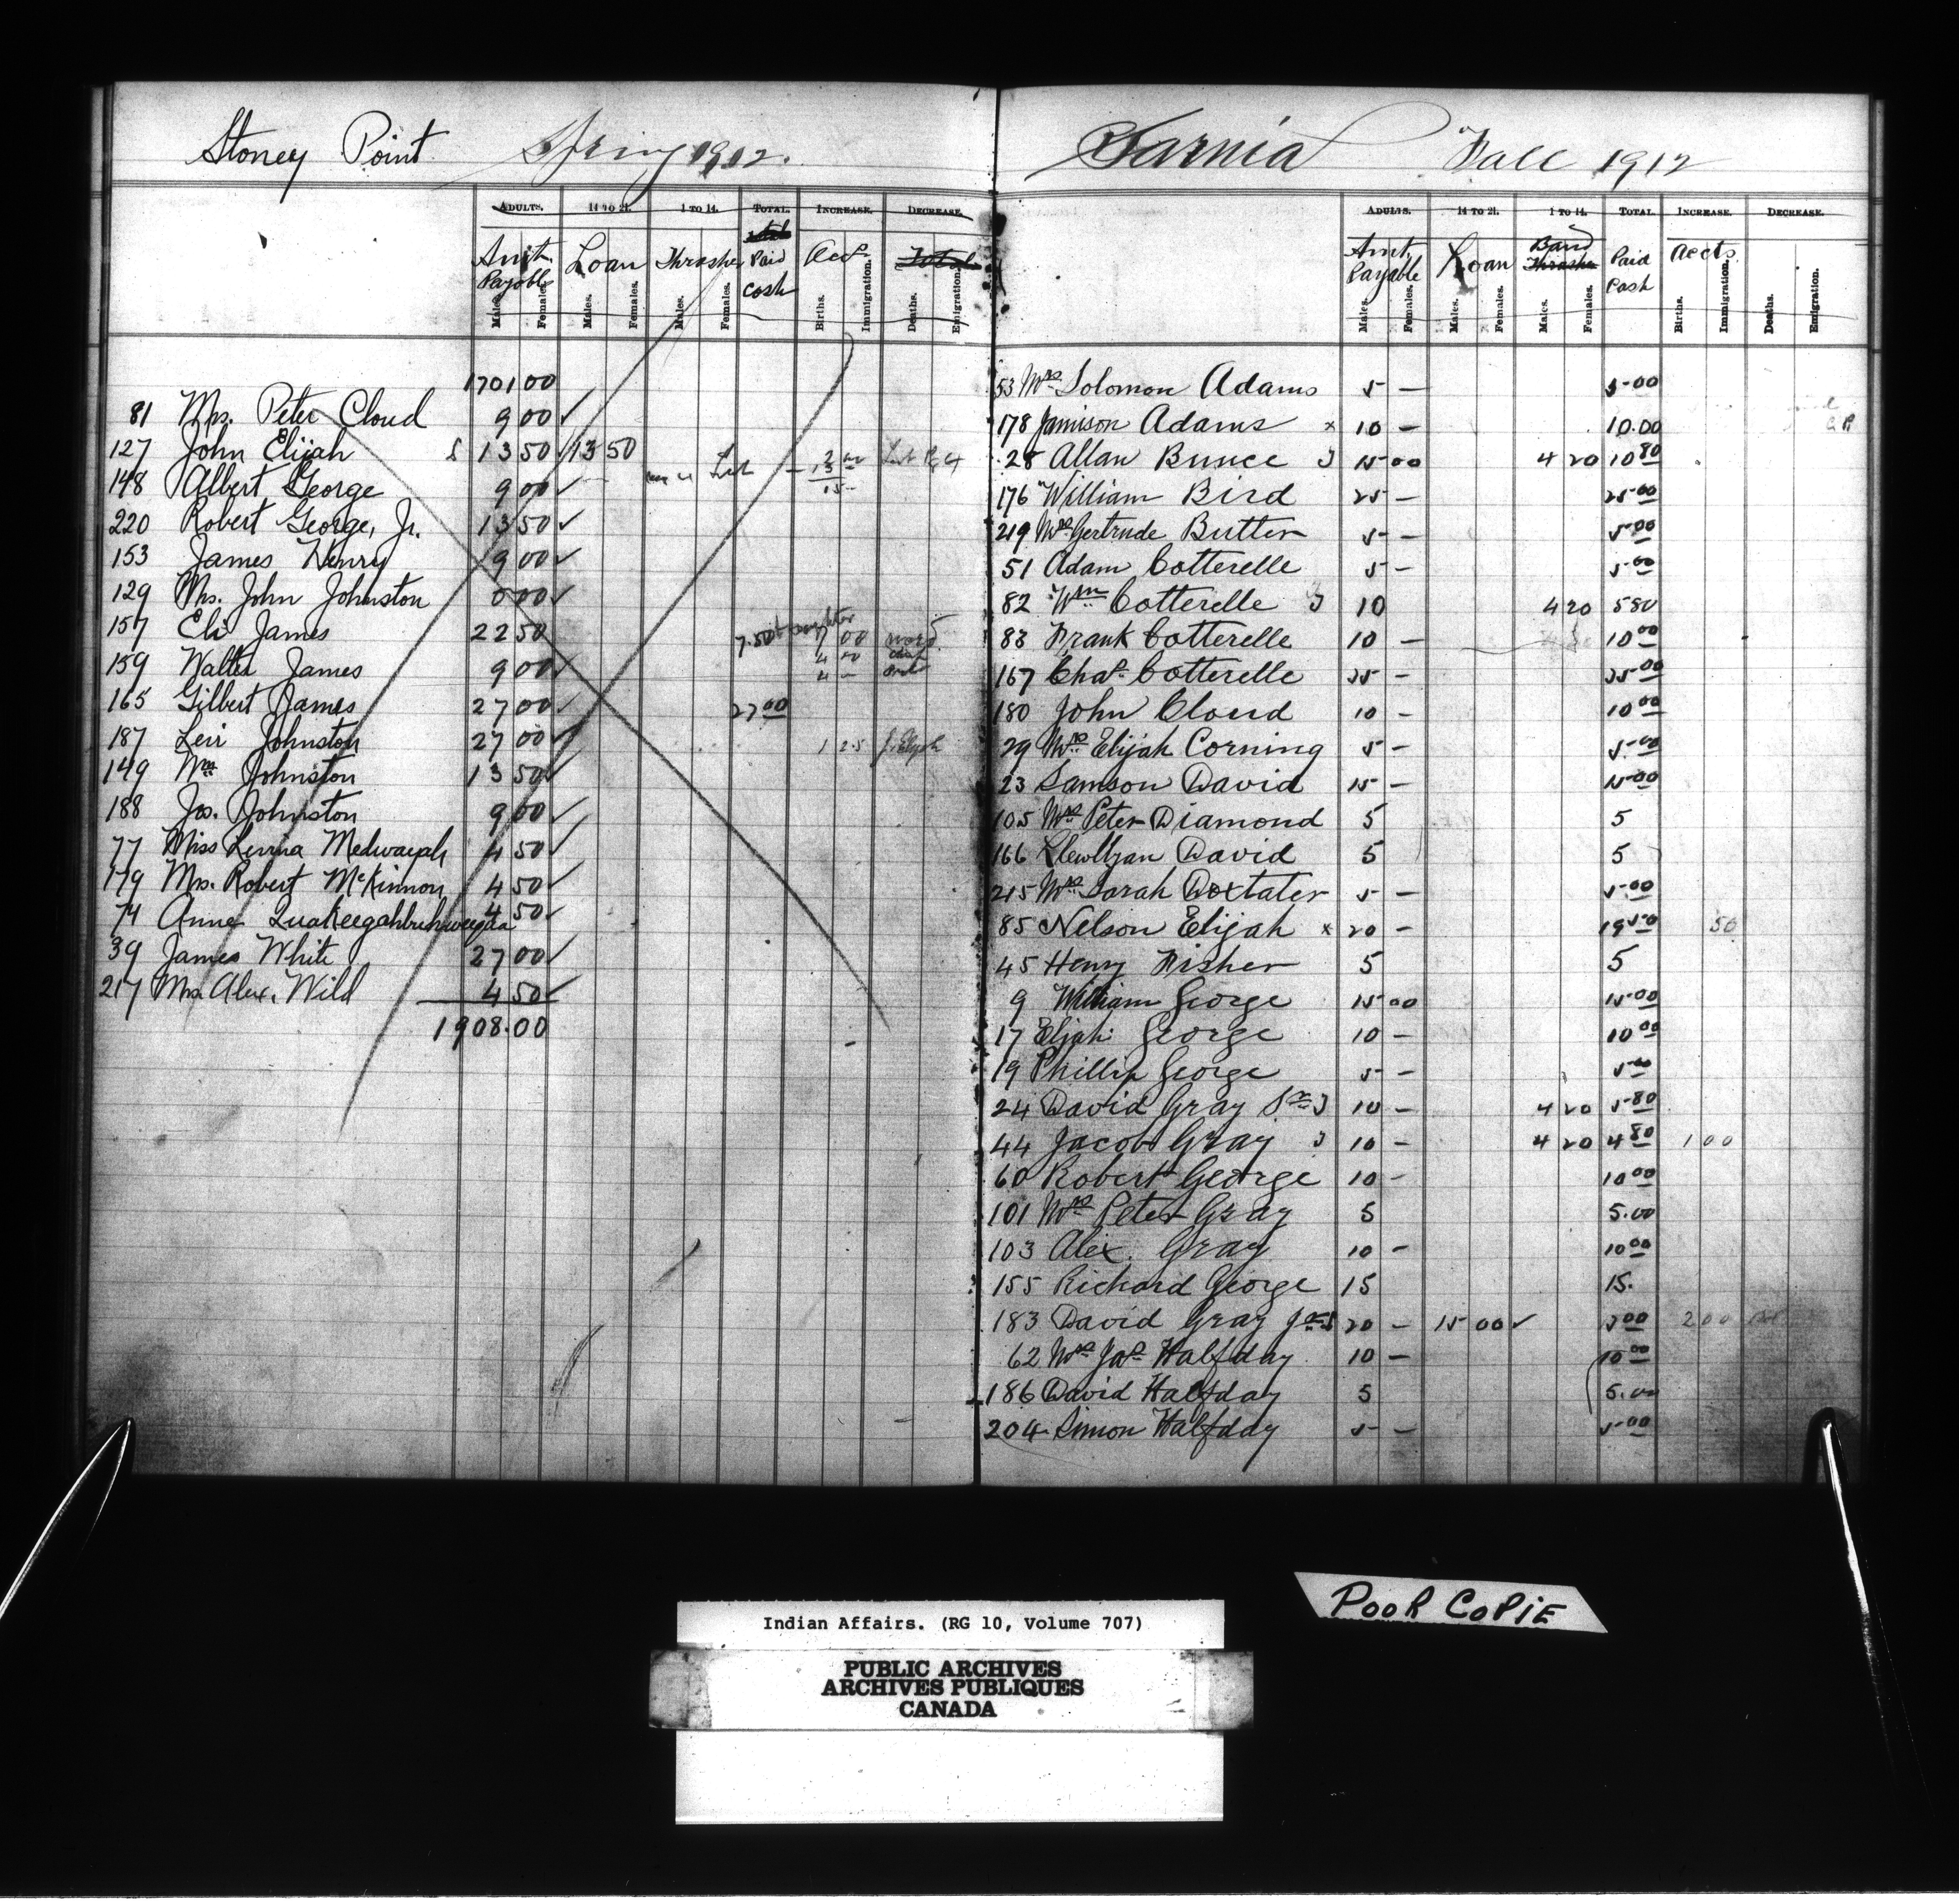 Stoney Point Spring 1912.
ADULTS. 14 TO 21. 1 TO 14. TOTAL. INCREASE. DECREASE.
Amt. Payable Loan Thrasher Paid cash Acct Total
Males. Females. Males. Females. Males. Females. Births. Immigration. Deaths. Emigration.
1701 00
81 Mrs. Peter Cloud 9 00 ✓
127 John Elijah L 13 50 13 50
148 Albert George 9 00 ✓
220 Robert George, Jr. 13 50 ✓
153 James Henry 9 00 ✓
129 Mrs. John Johnston 0 00 ✓
157 Eli James 22 50 7.50
159 Walter James 9 00 ✓
165 Gilbert James 27 00 ✓ 27 00
187 Levi Johnston 27 00 ✓ 1 25 J. Elijah
149 Wm Johnston 13 50 ✓
188 Jos. Johnston 9 00 ✓
77 Miss Levina Medwayah 4 50 ✓
179 Mrs. Robert McKinnon 4 50 ✓
74 Anne 4 50 ✓
39 James White 27 00 ✓
217 Mrs. Alex. Wild 4 50 ✓
1908.00
Sarnia Fall 1912
ADULTS. 14 TO 21. 1 TO 14. TOTAL. INCREASE. DECREASE.
Amt. Payable Loan Band Thrasher Paid Cash Accts
Males. Females. Males. Females. Males. Females. Births. Immigration. Deaths. Emigration.
53 Mrs Solomon Adams 5 – 5 00
178 Jamison Adams x 10 – 10.00
28 Allan Bunce J 15 00 4 20 10 80
176 William Bird 25 – 25 00
219 Mrs Gertrude Butter 5 – 5 00
51 Adam Cotterelle 5 – 5 00
82 Wm Cotterelle J 10 4 20 5 80
83 Frank Cotterelle 10 – 10 00
167 Chas Cotterelle 25 – 25 00
180 John Cloud 10 – 10 00
29 Mrs Elijah Corning 5 – 5 00
23 Samson David 15 – 15 00
105 Mrs Peter Diamond 5 5
166 Llewllyan David 5 5
215 Mrs Sarah Doxtater 5 – 5 00
85 Nelson Elijah x 20 – 19 50 50
45 Henry Fisher 5 5
9 William George 15 00 15 00
17 Elijah George 10 – 10 00
19 Phillip George 5 – 5 00
24 David Gray Sr J 10 – 4 20 5 80
44 Jacob Gray J 10 – 4 20 4 80 1 00
60 Robert George 10 – 10 00
101 Mrs Peter Gray 5 5.00
103 Alex. Gray 10 – 10 00
155 Richard George 15 15.
183 David Gray Jr 20 – 15 00 ✓ 3 00 2 00
62 Mrs Jas Halfday 10 – 10 00
186 David Halfday 5 5.00
204 Simon Halfday 5 – 5 00
POOR COPIE
Indian Affairs. (RG 10, Volume 707)
PUBLIC ARCHIVES
ARCHIVES PUBLIQUES
CANADA